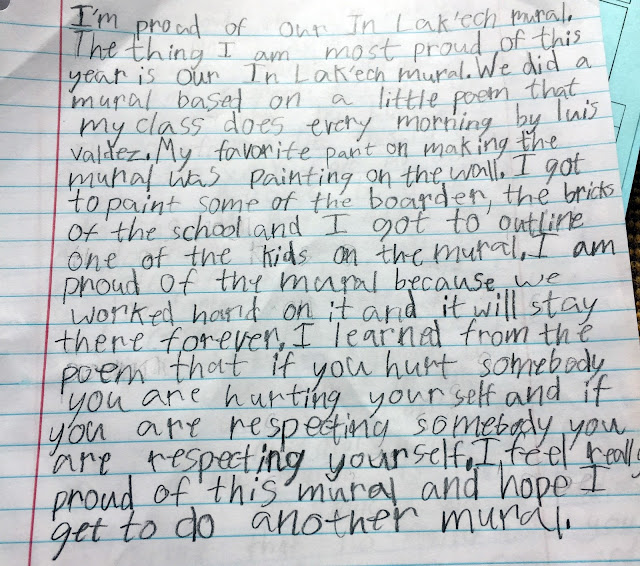 I'm proud of our In Lak'ech mural.
The thing I am most proud of this
year is our In Lak'ech mural. We did a
mural based on a little poem that
my class does every morning by luis
valdez. My favorite part on making the
mural was painting on the wall. I got
to paint some of the boarder, the bricks
of the school and I got to outline
one of the kids on the mural. I am
proud of the mural because we
worked hard on it and it will stay
there forever. I learned from the
poem that if you hurt somebody
you are hurting your self and if
you are respecting somebody you
are respecting yourself. I feel really
proud of this mural and hope I
get to do another mural.